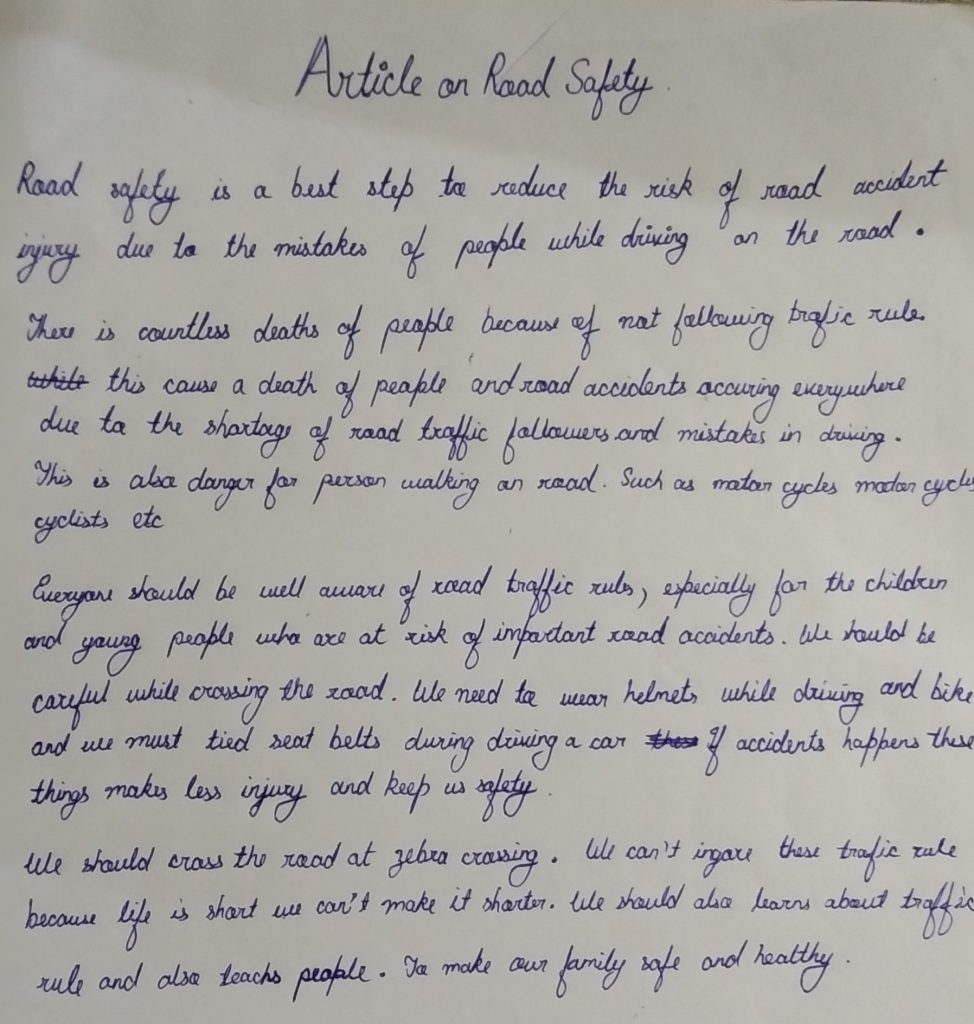 Article on Road Safety.
Road safety is a best step to reduce the risk of road accident
injury due to the mistakes of people while driving on the road.
There is countless deaths of people because of not following trafic rule.
while this cause a death of people and road accidents occuring everywhere
due to the shortage of road traffic followers and mistakes in driving.
This is also danger for person walking on road. Such as motor cycles motor cycles
cyclists etc
Everyone should be well aware of road traffic rules, especially for the children
and young people who are at risk of important road accidents. We should be
careful while crossing the road. We need to wear helmets while driving and bike
and we must tied seat belts during driving a car these If accidents happens these
things makes less injury and keep us safety.
We should cross the road at zebra crossing. We can't ingore these trafic rule
because life is short we can't make it shorter. We should also learns about traffic
rule and also teachs people. To make our family safe and healthy.